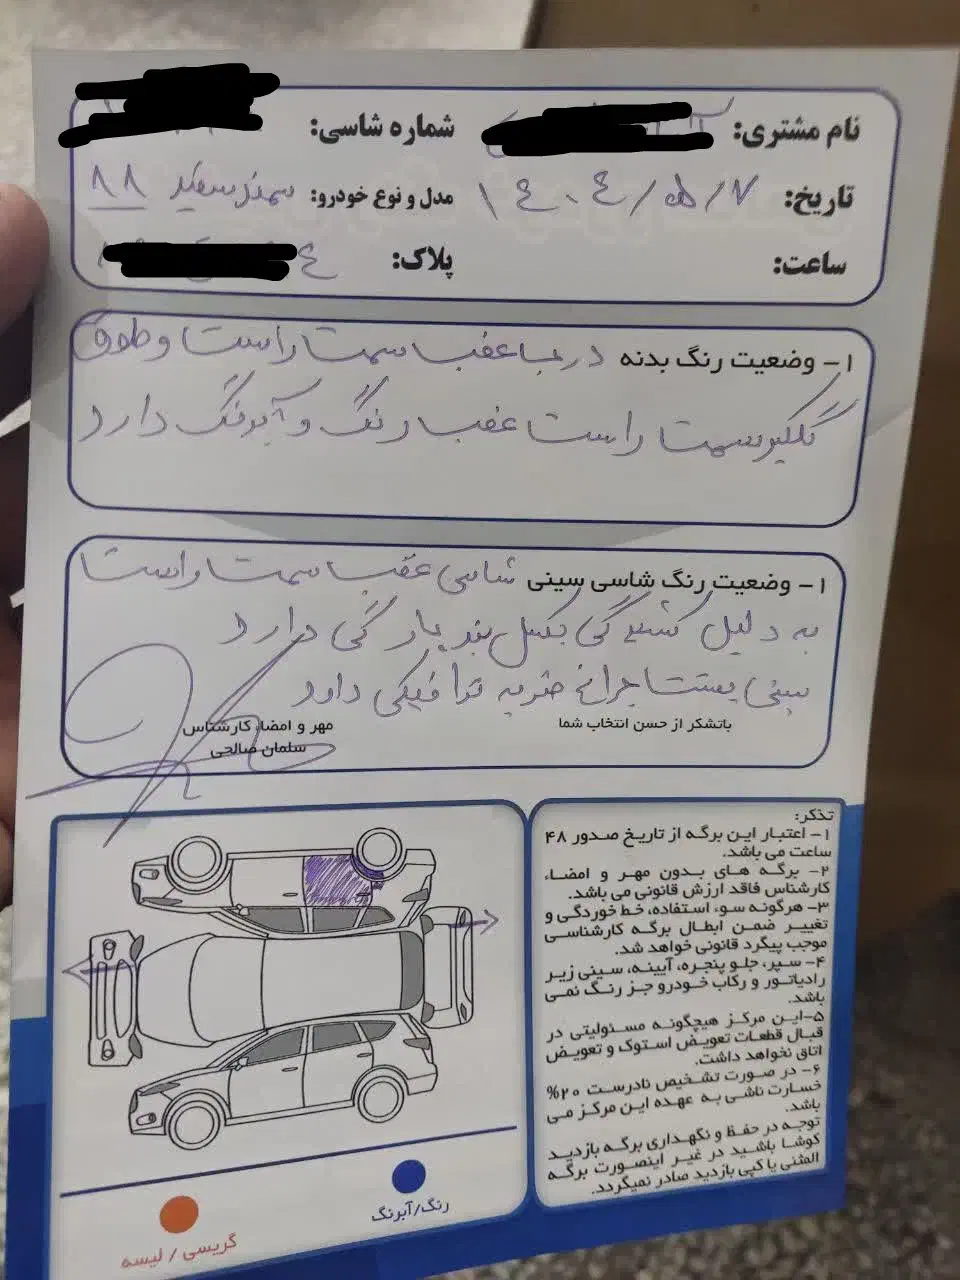 نام مشتری:
شماره شاسی:
تاریخ: ۱۴۰۴/۵/۷
مدل و نوع خودرو: سمند سفید ۸۸
ساعت:
پلاک:
۱- وضعیت رنگ بدنه درب عقب سمت راست و طوق
گلگیر سمت راست عقب رنگ و آبرنگ دارد
۱- وضعیت رنگ شاسی سینی شاسی عقب سمت راست
به دلیل کشیدگی بکسل بند پارگی دارد
سینی پشت چراغ ضربه ترافیکی دارد
باتشکر از حسن انتخاب شما
مهر و امضاء کارشناس
سلمان صالحی
تذکر:
۱- اعتبار این برگه از تاریخ صدور ۴۸
ساعت می باشد.
۲- برگه های بدون مهر و امضاء
کارشناس فاقد ارزش قانونی می باشد.
۳- هرگونه سوء استفاده، خط خوردگی و
تغییر ضمن ابطال برگه کارشناسی
موجب پیگرد قانونی خواهد شد.
۴- سپر، جلو پنجره، آیینه، سینی زیر
رادیاتور و رکاب خودرو جز رنگ نمی
باشد.
۵-این مرکز هیچگونه مسئولیتی در
قبال قطعات تعویض استوک و تعویض
اتاق نخواهد داشت.
۶- در صورت تشخیص نادرست ۲۰%
خسارت ناشی به عهده این مرکز می
باشد.
توجه در حفظ و نگهداری برگه بازدید
کوشا باشید در غیر اینصورت برگه
المثنی یا کپی بازدید صادر نمیگردد.
رنگ/آبرنگ
گریسی / لیسه